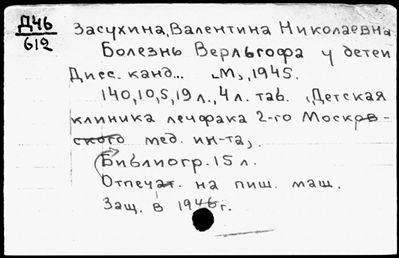 Д46
612
Засухина, Валентина Николаевна
Болезнь Верльгофа у детей
Дисс. канд... М., 1945.
140,10,5,19 л., 4 л. таб. (Детская
клиника лечфака 2-го Москов-
ского мед. ин-та).
Библиогр. 15 л.
Отпечат. на пиш. маш.
Защ. в 1946 г.